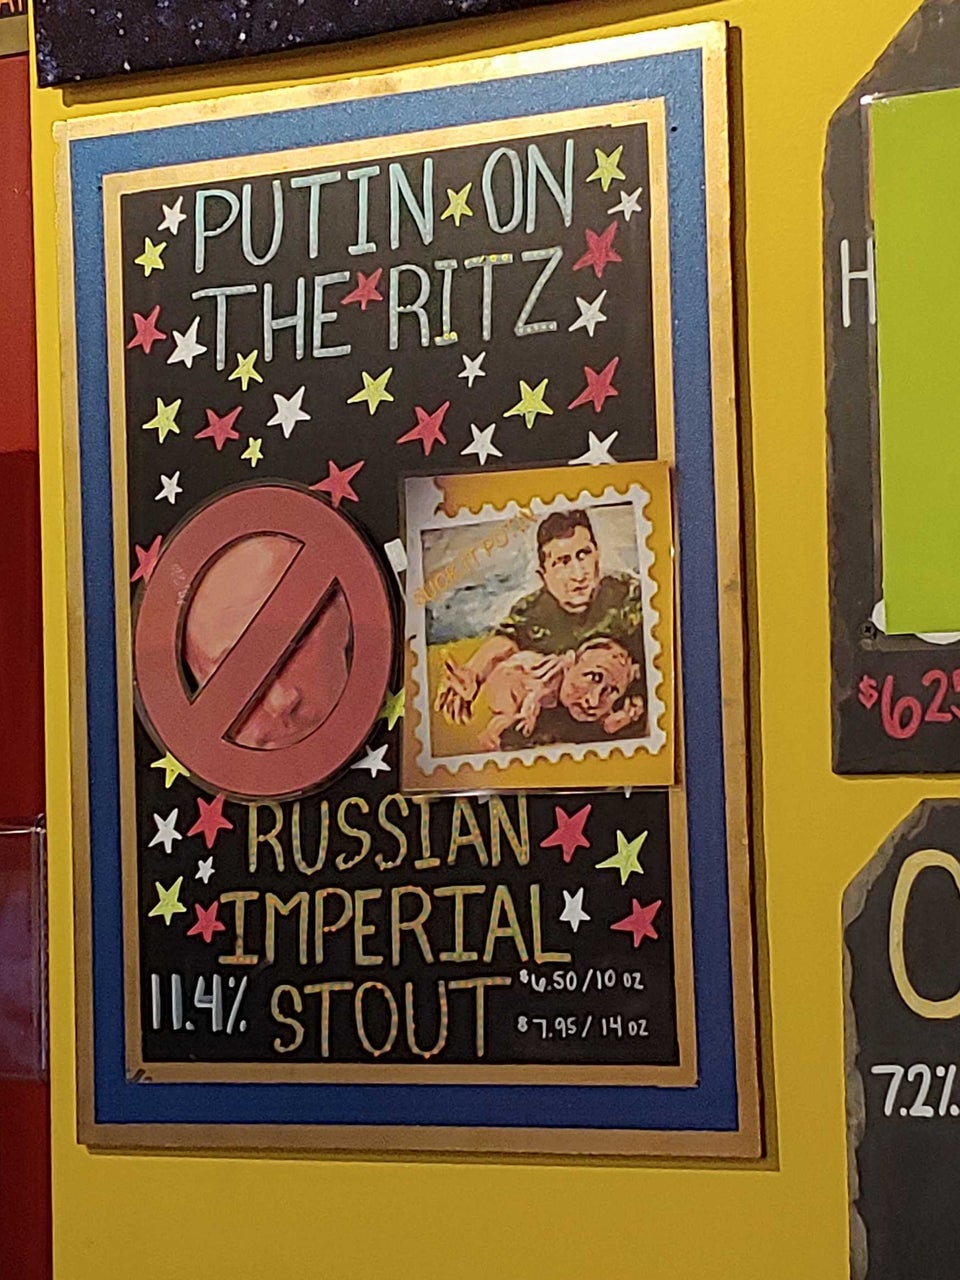 PUTIN ON
THE RITZ
SUCK IT PUTIN
RUSSIAN
IMPERIAL
STOUT
11.4%
$6.50/10 oz
$7.95/14 oz
H
$625
O
7.2%